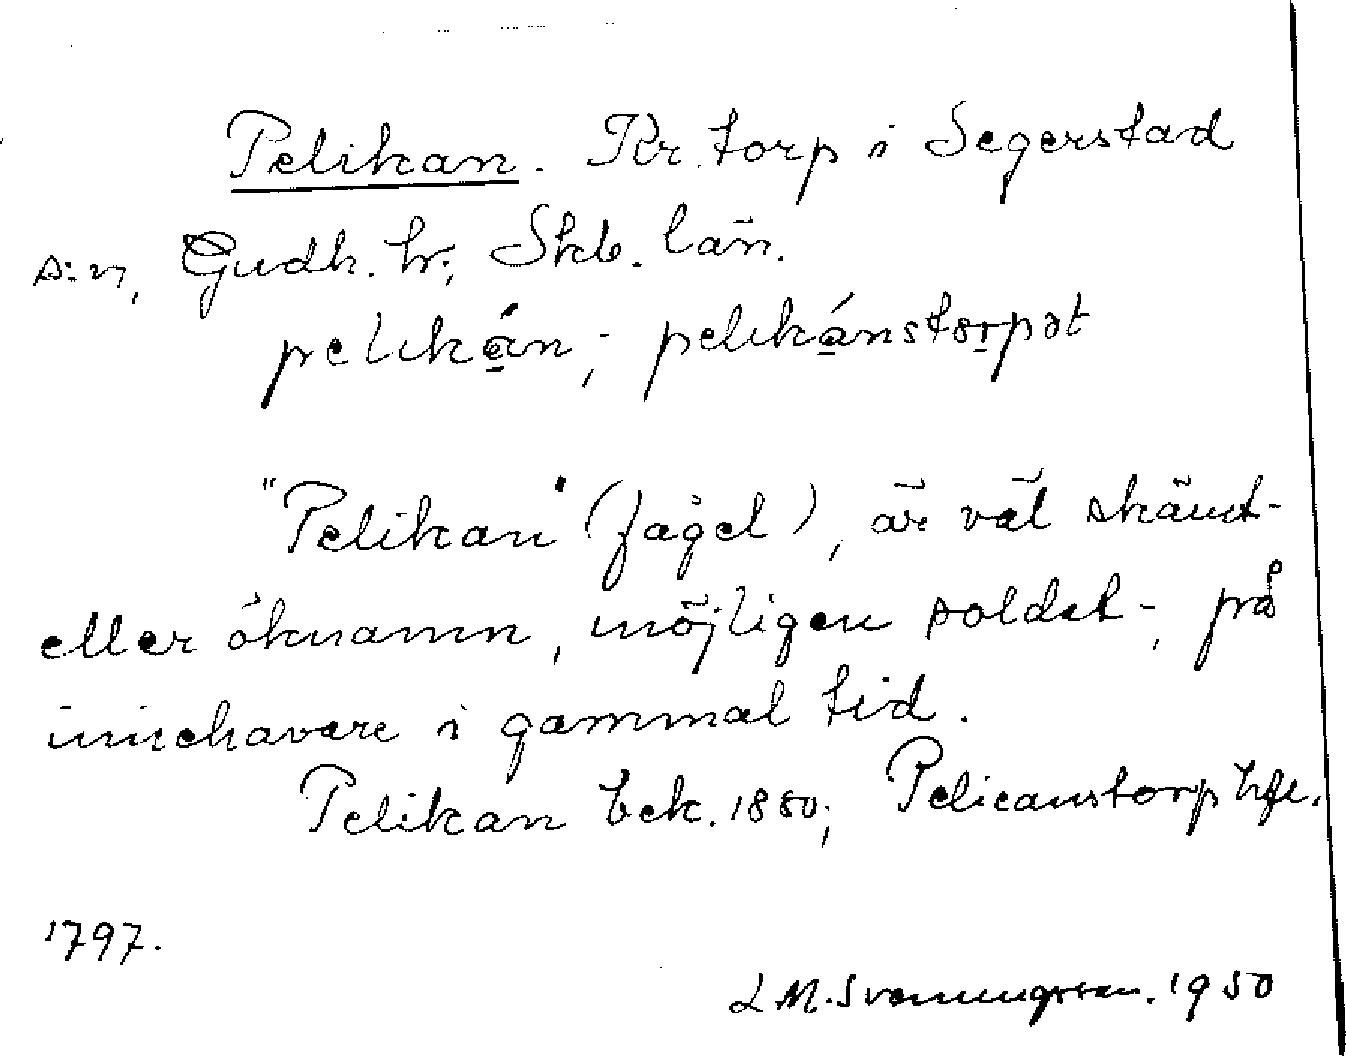 Pelikan. Kr. torp i Segerstad
s:n, Gudh. hr., Skb. län.
pelikán; pelikánstorpət
"Pelikan" (fågel), är väl skämt-
eller öknamn, möjligen soldat-, på
innehavare i gammal tid.
Pelikan bek. 1880; Pelicanstorp hfl.
1797.
L M. Svenungsson. 1950